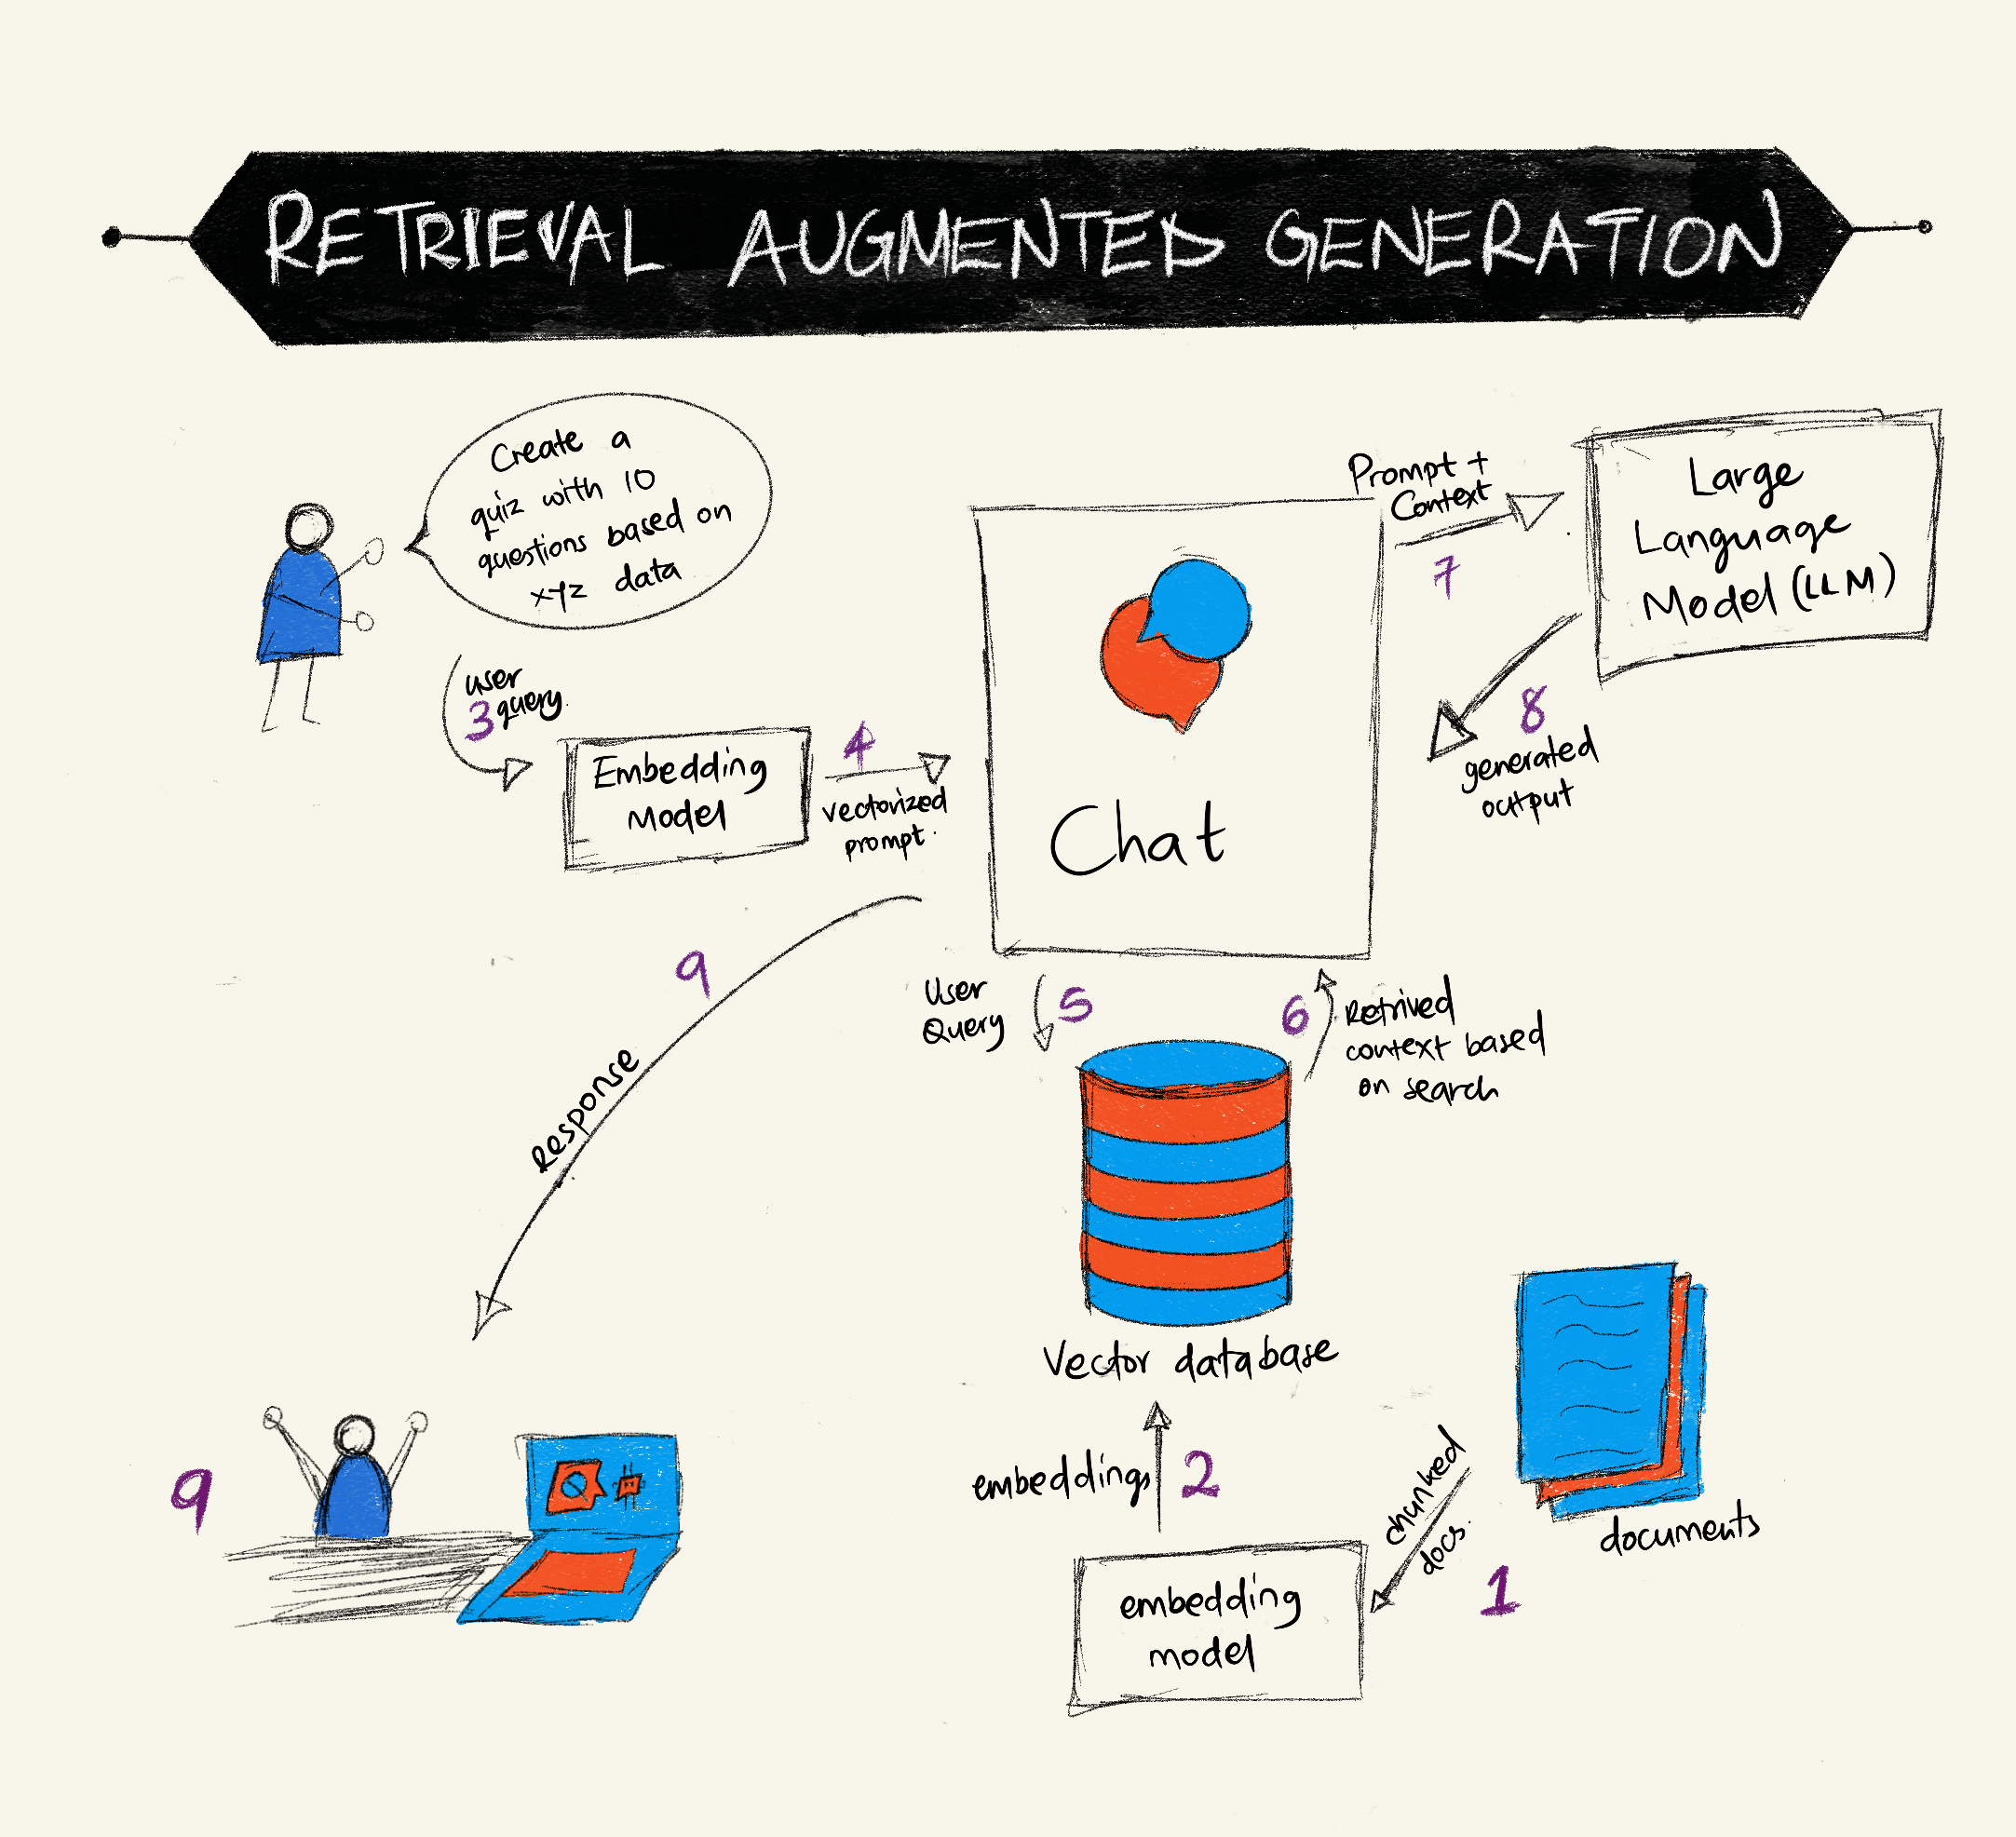 RETRIEVAL AUGMENTED GENERATION
Create a
quiz with 10
questions based on
xyz data
user
query.
3
Embedding
Model
4
vectorized
prompt.
Chat
Prompt +
Context
7
Large
Language
Model (LLM)
8
generated
output
9
Response
User
Query
5
6
Retrived
context based
on search
Vector database
embeddings
2
embedding
model
chunked
docs.
1
documents
9